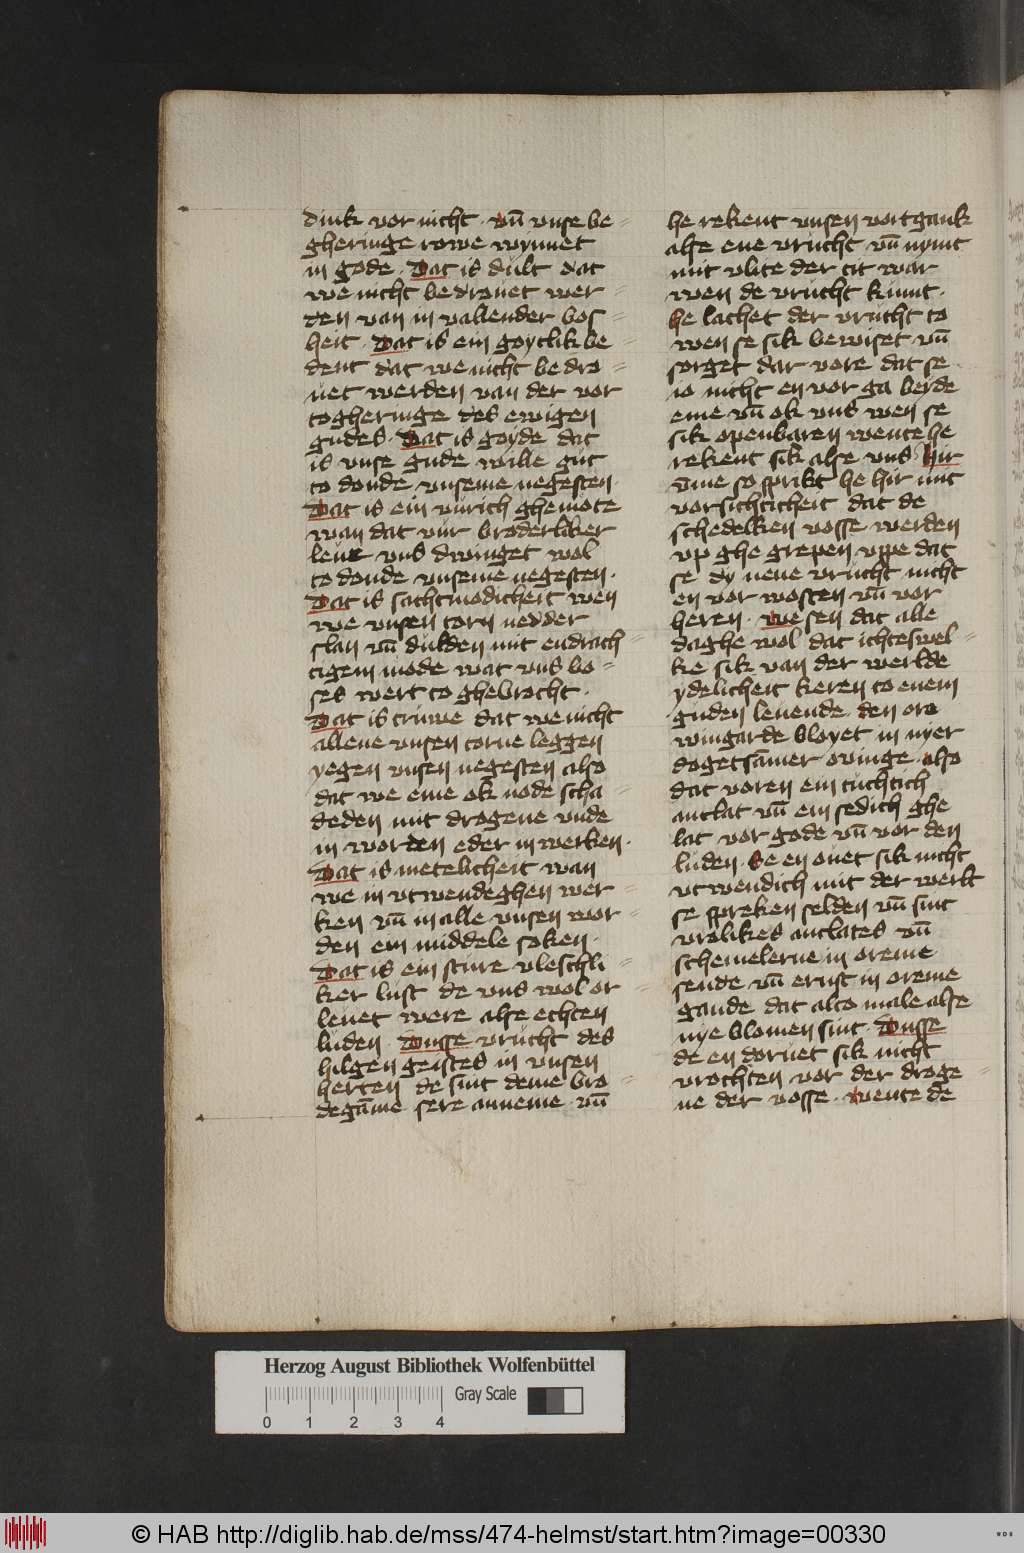 dink vor nicht · vn̄ vnse be=
gheringe rowe wynnet
in gode · Dat is dult dat
we nicht bedrouet wer=
den van in vallender bos=
heit · Dat is ein goytlik be=
dent dat we nicht bedro=
uet werden van der vor
togheringe des ewigen
gudes · Dat is goyde dat
is vnse gude wille gut
to donde vnseme negesten ·
Dat is ein vurich ghemote
wan dat vur broderliker
leue vns dwinget wol
to donde vnseme negesten ·
Dat is sachtmodicheit wen
we vnsen torn nedder
slan vn̄ dulden mit endrach=
tigem mode wat vns bo=
ses wert to ghebrocht ·
Dat is truwe dat we nicht
allene vnsen torne leggen
yegen vnsen negesten also
dat we eme ok node scha=
deden mit drogene vnde
in worden eder in werken ·
Dat is metelicheit wan
we in vtwendeghen wer=
ken vn̄ in alle vnsen wor=
den ein middele soken ·
Dat is ein sture vleschli=
ker lust de vns wol or=
leuet were alse echten
luden · Dusse vrucht des
hilgen geistes in vnsen
herten de sint deme bro=
degāme sere anneme · vn̄
he rekent vnsen vortgank
alse ene vrucht vn̄ nymt
mit vlite der tit war
wen de vrucht kumt ·
he lachet der vrucht to
wen se sik bewiset · vn̄
sorget dar vore dat se
io nicht en vor ga beyde
eme vn̄ ok vns wen se
sik openbaren wente he
rekent sik alse vns Hir
vme so sprikt he hir mit
vorsichticheit dat de
schedelken vosse werden
vp ghe grepen vppe dat
se dy nene vrucht nicht
en vor wosten vn̄ vor
heren · We sen dat alle
daghe wol dat ichteswel=
ke sik van der werlde
ydelicheit keren to enem
guden leuende · den ore
wingarde bloyet in nyer
dogetsāmer ouinge · also
dat voren ein tuchtich
antlat vn̄ ein sedich ghe
lat vor gode vn̄ vor den
luden · Se en ouet sik nicht
vtwendich mit der werlt
se spreken selden vn̄ sint
vrolikes antlates vn̄
schemelerne in oreme
sende vn̄ ernst in oreme
gande dat alto male alse
nye blomen sint · Dusse
de en doruet sik nicht
vrochten vor der droge=
ne der vosse · wente de
Herzog August Bibliothek Wolfenbüttel
0 1 2 3 4
Gray Scale
© HAB http://diglib.hab.de/mss/474-helmst/start.htm?image=00330